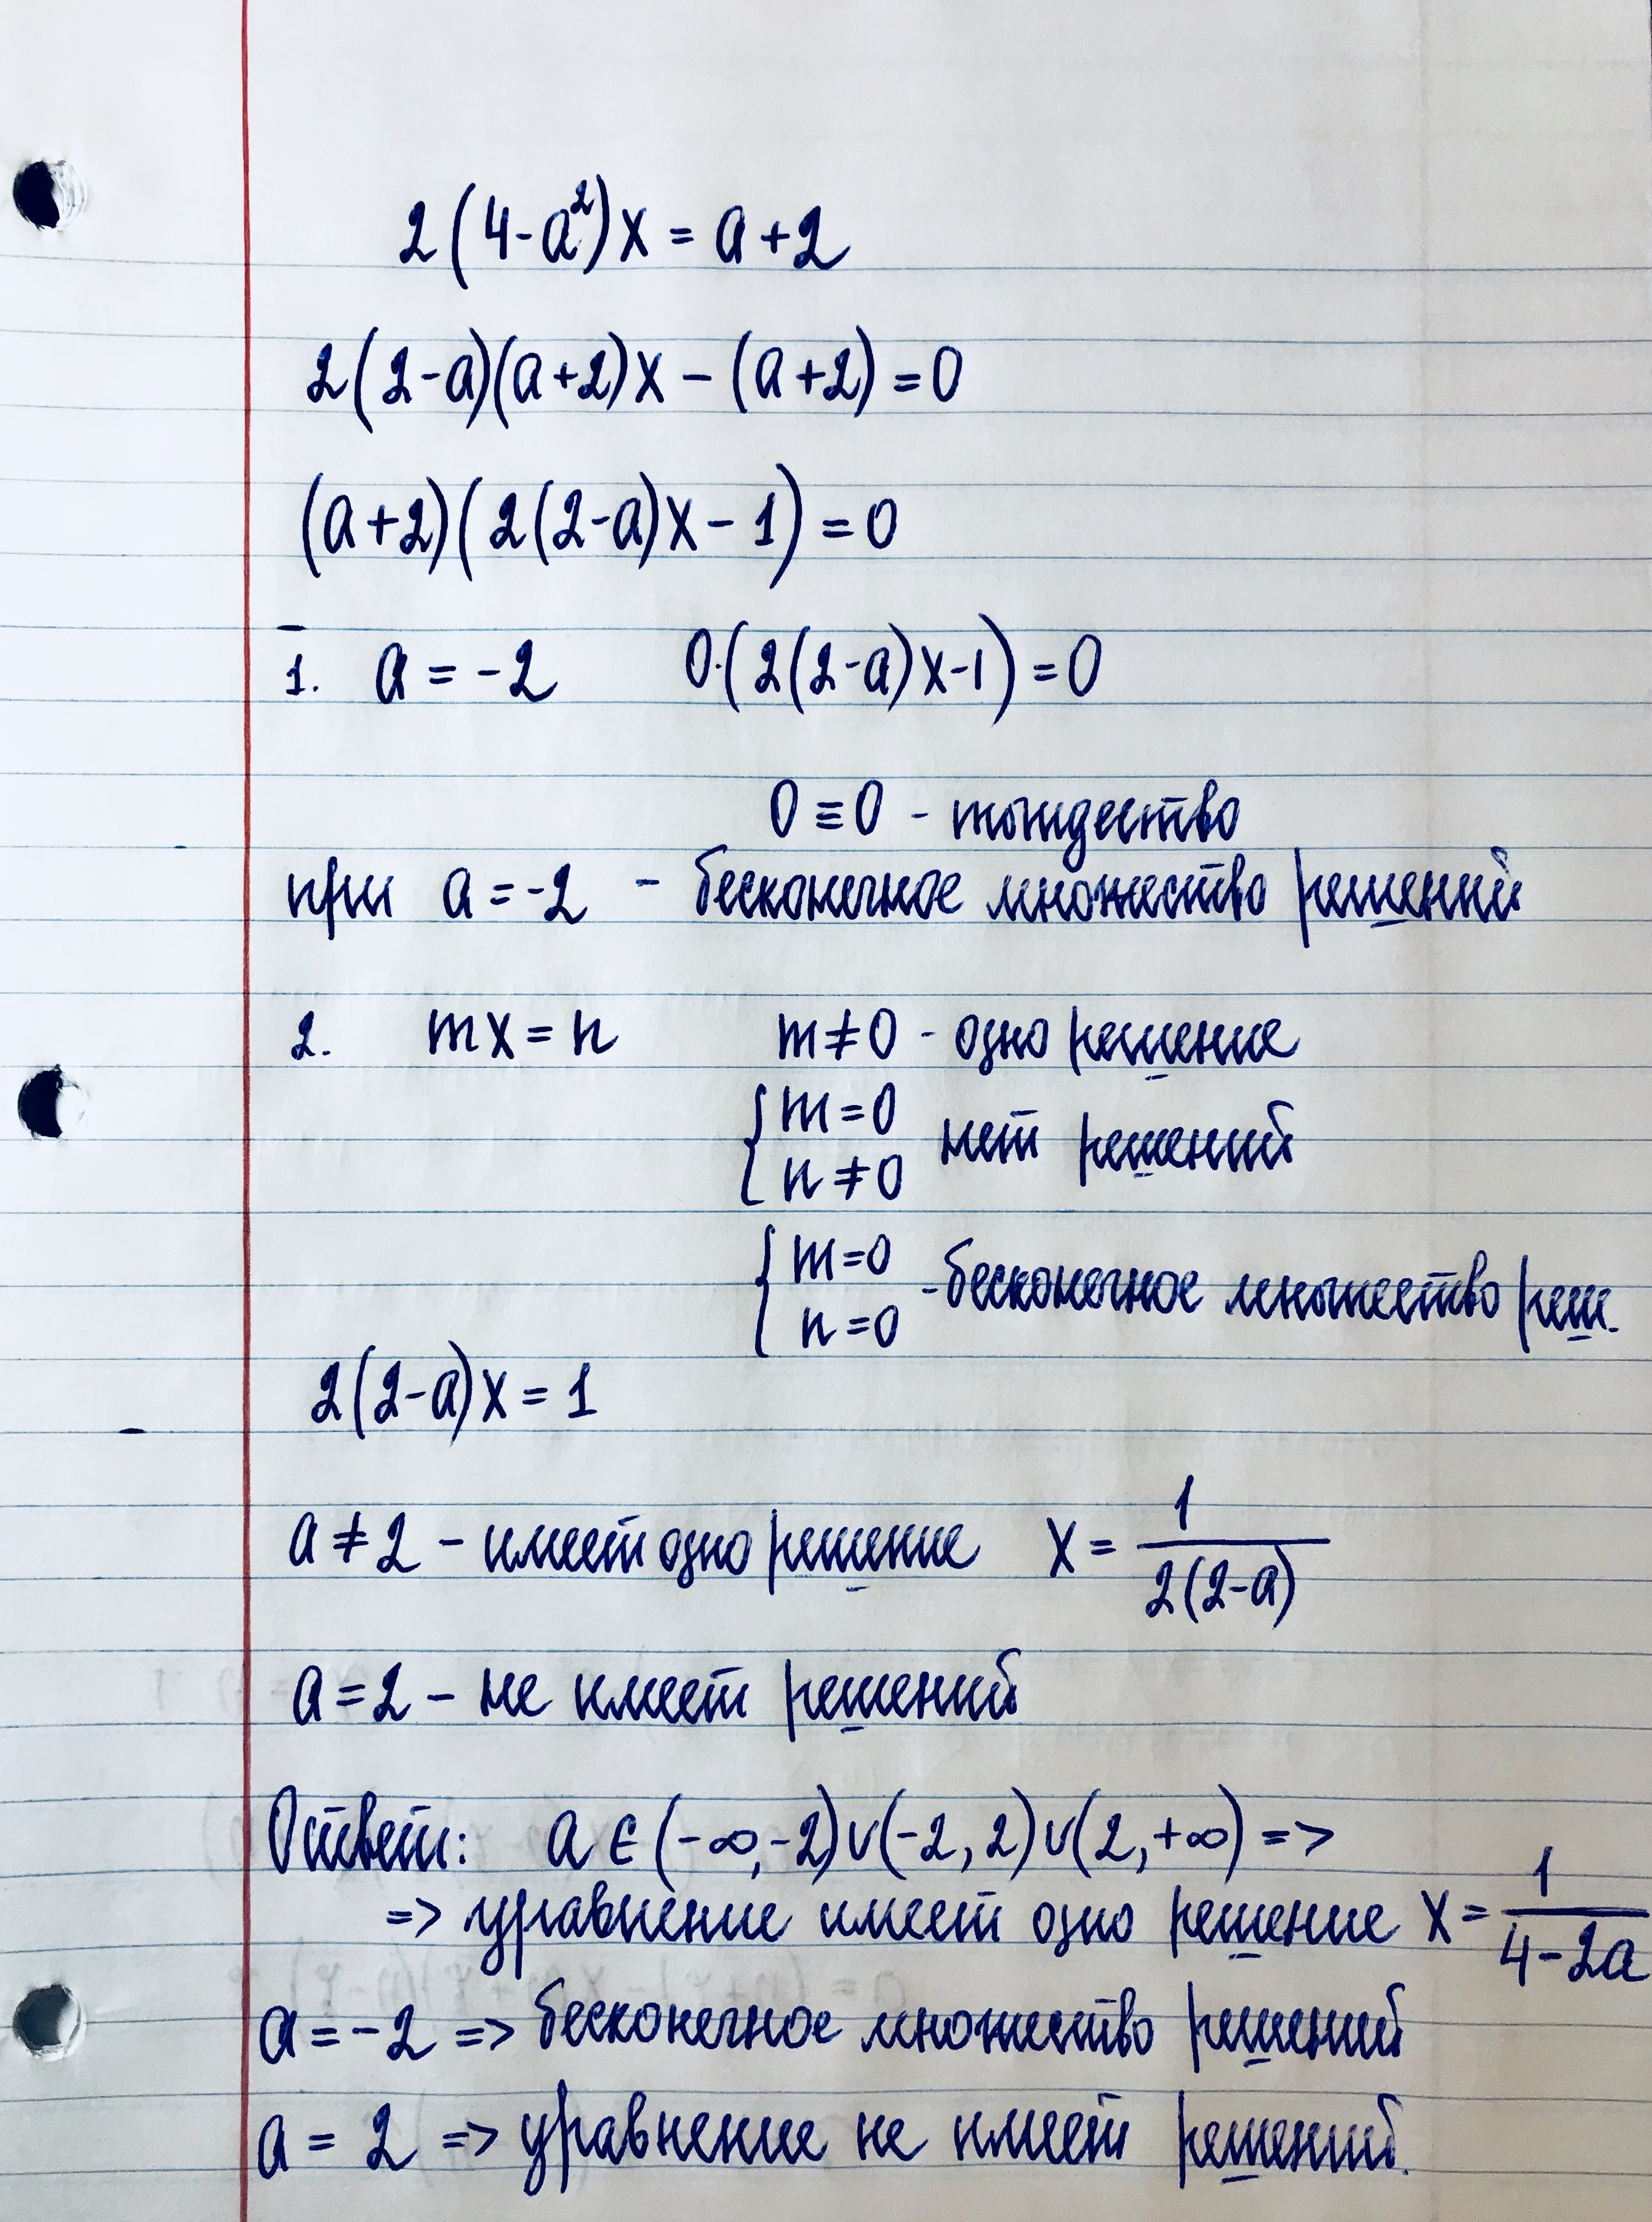 2(4-a²)x = a+2
2(2-a)(a+2)x - (a+2) = 0
(a+2)(2(2-a)x - 1) = 0
1. a = -2 0·(2(2-a)x-1) = 0
0 ≡ 0 - тождество
при a = -2 - бесконечное множество решений
2. mx = n m ≠ 0 - одно решение
{ m = 0
n ≠ 0 нет решений
{ m = 0
n = 0 - бесконечное множество реш.
2(2-a)x = 1
a ≠ 2 - имеет одно решение x = 1/(2(2-a))
a = 2 - не имеет решений
Ответ: a ∈ (-∞,-2)∪(-2,2)∪(2,+∞) =>
=> уравнение имеет одно решение x = 1/(4-2a)
a = -2 => бесконечное множество решений
a = 2 => уравнение не имеет решений.